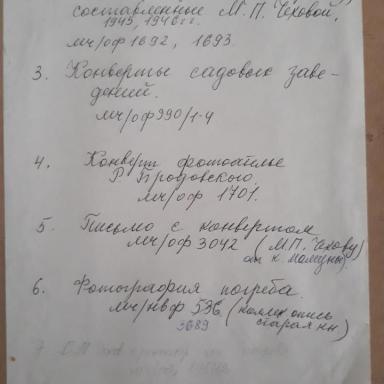 составленные М.П. Чеховой,
1945, 1946 гг.
мч/оф 1692, 1693.
3. Конверты садовых заве-
дений.
мч/оф 990/1-4
4. Конверт фотоателье
Р. Бродовского.
мч/оф 1701.
5. Письмо с конвертом
мч/оф 3042 (М.П. Чехову)
от к.
6. Фотография погреба.
мч/нвф 536 (коллек. опись
3689 старая нн)